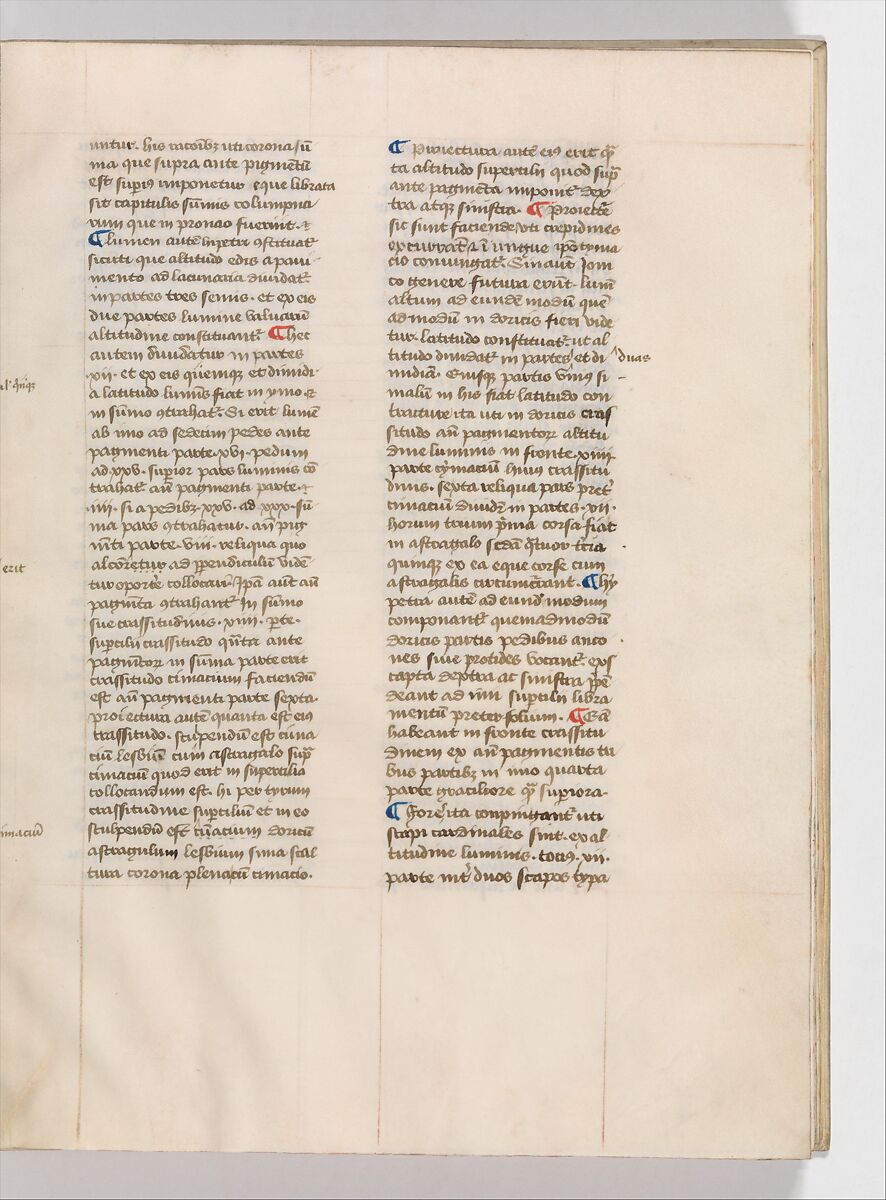 untur. his racoībꝫ uti corona sū
ma que supra ante pigmētū
est supiꝰ imponetur eque librata
sit capitulis sūmis columpna
rum que in pronao fuerint. ⁊
¶ lumen autē hipetri ꝯstituat᷑
sicuti que altitudo edis a paui
mento ad lacunaria diuidat᷑
in partes tres semis. et ex eis
due partes lumine valuarū
altitudine constituant᷑ ¶ hec
autem diuidatur in partes
.xij. et ex eis quemqꝫ et dimidi
a latitudo luminis fiat in ymo. ⁊
in sūmo ꝯtrahat᷑. Si erit lumē
ab imo ad sedecim pedes ante
pagmenti parte .xvi. pedum
ad .xxv. superior pars luminis cō
trahat᷑ añ pagmenti parte. ⁊
.iiij. si a pedibꝫ .xxv. ad .xxx. sū
ma pars ꝯtrahatur. añ pag
mēti parte .viii. reliqua quo
altoretur ad ppendiculum vidē
tur oportere collocari. Ipa aut añ
pagmēta ꝯtrahant᷑ In sūmo
sue crassitudinis .xiiij. parte.
supercilii crassitudo quanta ante
pagmētorum in sūma parte erit
crassitudo cimacium faciendum
est añ pagmenti parte sexta.
proiectura autē quanta est eius
crassitudo. sculpendū est cima
ciū lesbiū cum astragalo supra
cimaciū quod erit in supercilia
collocandum est. hi per tyrum
crassitudine superciliū et in eo
sculpendū est cimacium doricū
astragulum lesbium sima scal
tura corona plenacū cimacio.
¶ Proiectura autē eiꝰ erit quā
ta altitudo supercilii quod supra
ante pagmēta imponit᷑ dex
tra atqꝫ sinistra. ¶ Proiecte
sic sunt faciende uti crepidines
excurrāt ⁊ ī ungue ipō tyma
cio coniungat᷑. Sin autē Ioni
co genere futura erūt. lumē
altum ad eundē modū que
ad modū in doricis fieri vide
tur. latitudo constituat᷑. ut al
titudo diuidat᷑ in partes ^ et di ^ duas
midiā. Eiusqꝫ partis vnius si
malū in his fiat latitudo con
tracture ita uti in doricis cras
situdo añ pagmentorum altitu
dine luminis in fronte .xiiij.
parte cymacium huius crassitu
dinis. sexta reliqua pars preter
cimaciū diuidit᷑ in partes .xij.
horum trium prima corsa fiat
in astragalo secūda quatuor tercia
quinque ex ea eque corse cum
astragalis circumcurrant. ¶ hy
petra autē ad eundē modum
componant᷑ quemadmodū
doricis partis pedibus anco
nes siue protides vocant᷑ exs
capta dextra ac sinistra pre
deant ad imi supercilii libra
mentum preter folium. ¶ Ea
habeant in fronte crassitu
dinem ex añ pagmentis tri
bus partibꝫ in imo quarta
parte graciliore quam superiora.
¶ Fores ita conpingant᷑ uti
scapi cardinales sint. ex al
titudine luminis. tociꝰ .xij.
parte inter duos scapos typa
erit
imaciū